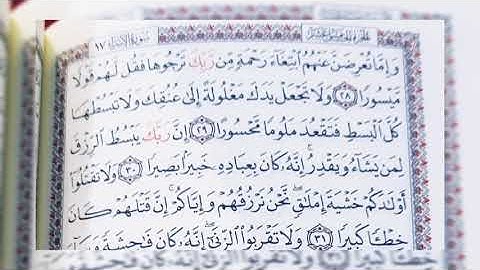 سورة الإسراء ١٧
وَإِمَّا تُعْرِضَنَّ عَنْهُمُ ابْتِغَاءَ رَحْمَةٍ مِّن رَّبِّكَ تَرْجُوهَا فَقُل لَّهُمْ قَوْلًا
مَّيْسُورًا ﴿٢٨﴾ وَلَا تَجْعَلْ يَدَكَ مَغْلُولَةً إِلَىٰ عُنُقِكَ وَلَا تَبْسُطْهَا
كُلَّ الْبَسْطِ فَتَقْعُدَ مَلُومًا مَّحْسُورًا ﴿٢٩﴾ إِنَّ رَبَّكَ يَبْسُطُ الرِّزْقَ
لِمَن يَشَاءُ وَيَقْدِرُ ۚ إِنَّهُ كَانَ بِعِبَادِهِ خَبِيرًا بَصِيرًا ﴿٣٠﴾ وَلَا تَقْتُلُوا
أَوْلَادَكُمْ خَشْيَةَ إِمْلَاقٍ ۖ نَّحْنُ نَرْزُقُهُمْ وَإِيَّاكُمْ ۚ إِنَّ قَتْلَهُمْ كَانَ
خِطْئًا كَبِيرًا ﴿٣١﴾ وَلَا تَقْرَبُوا الزِّنَىٰ ۖ إِنَّهُ كَانَ فَاحِشَةً وَسَاءَ